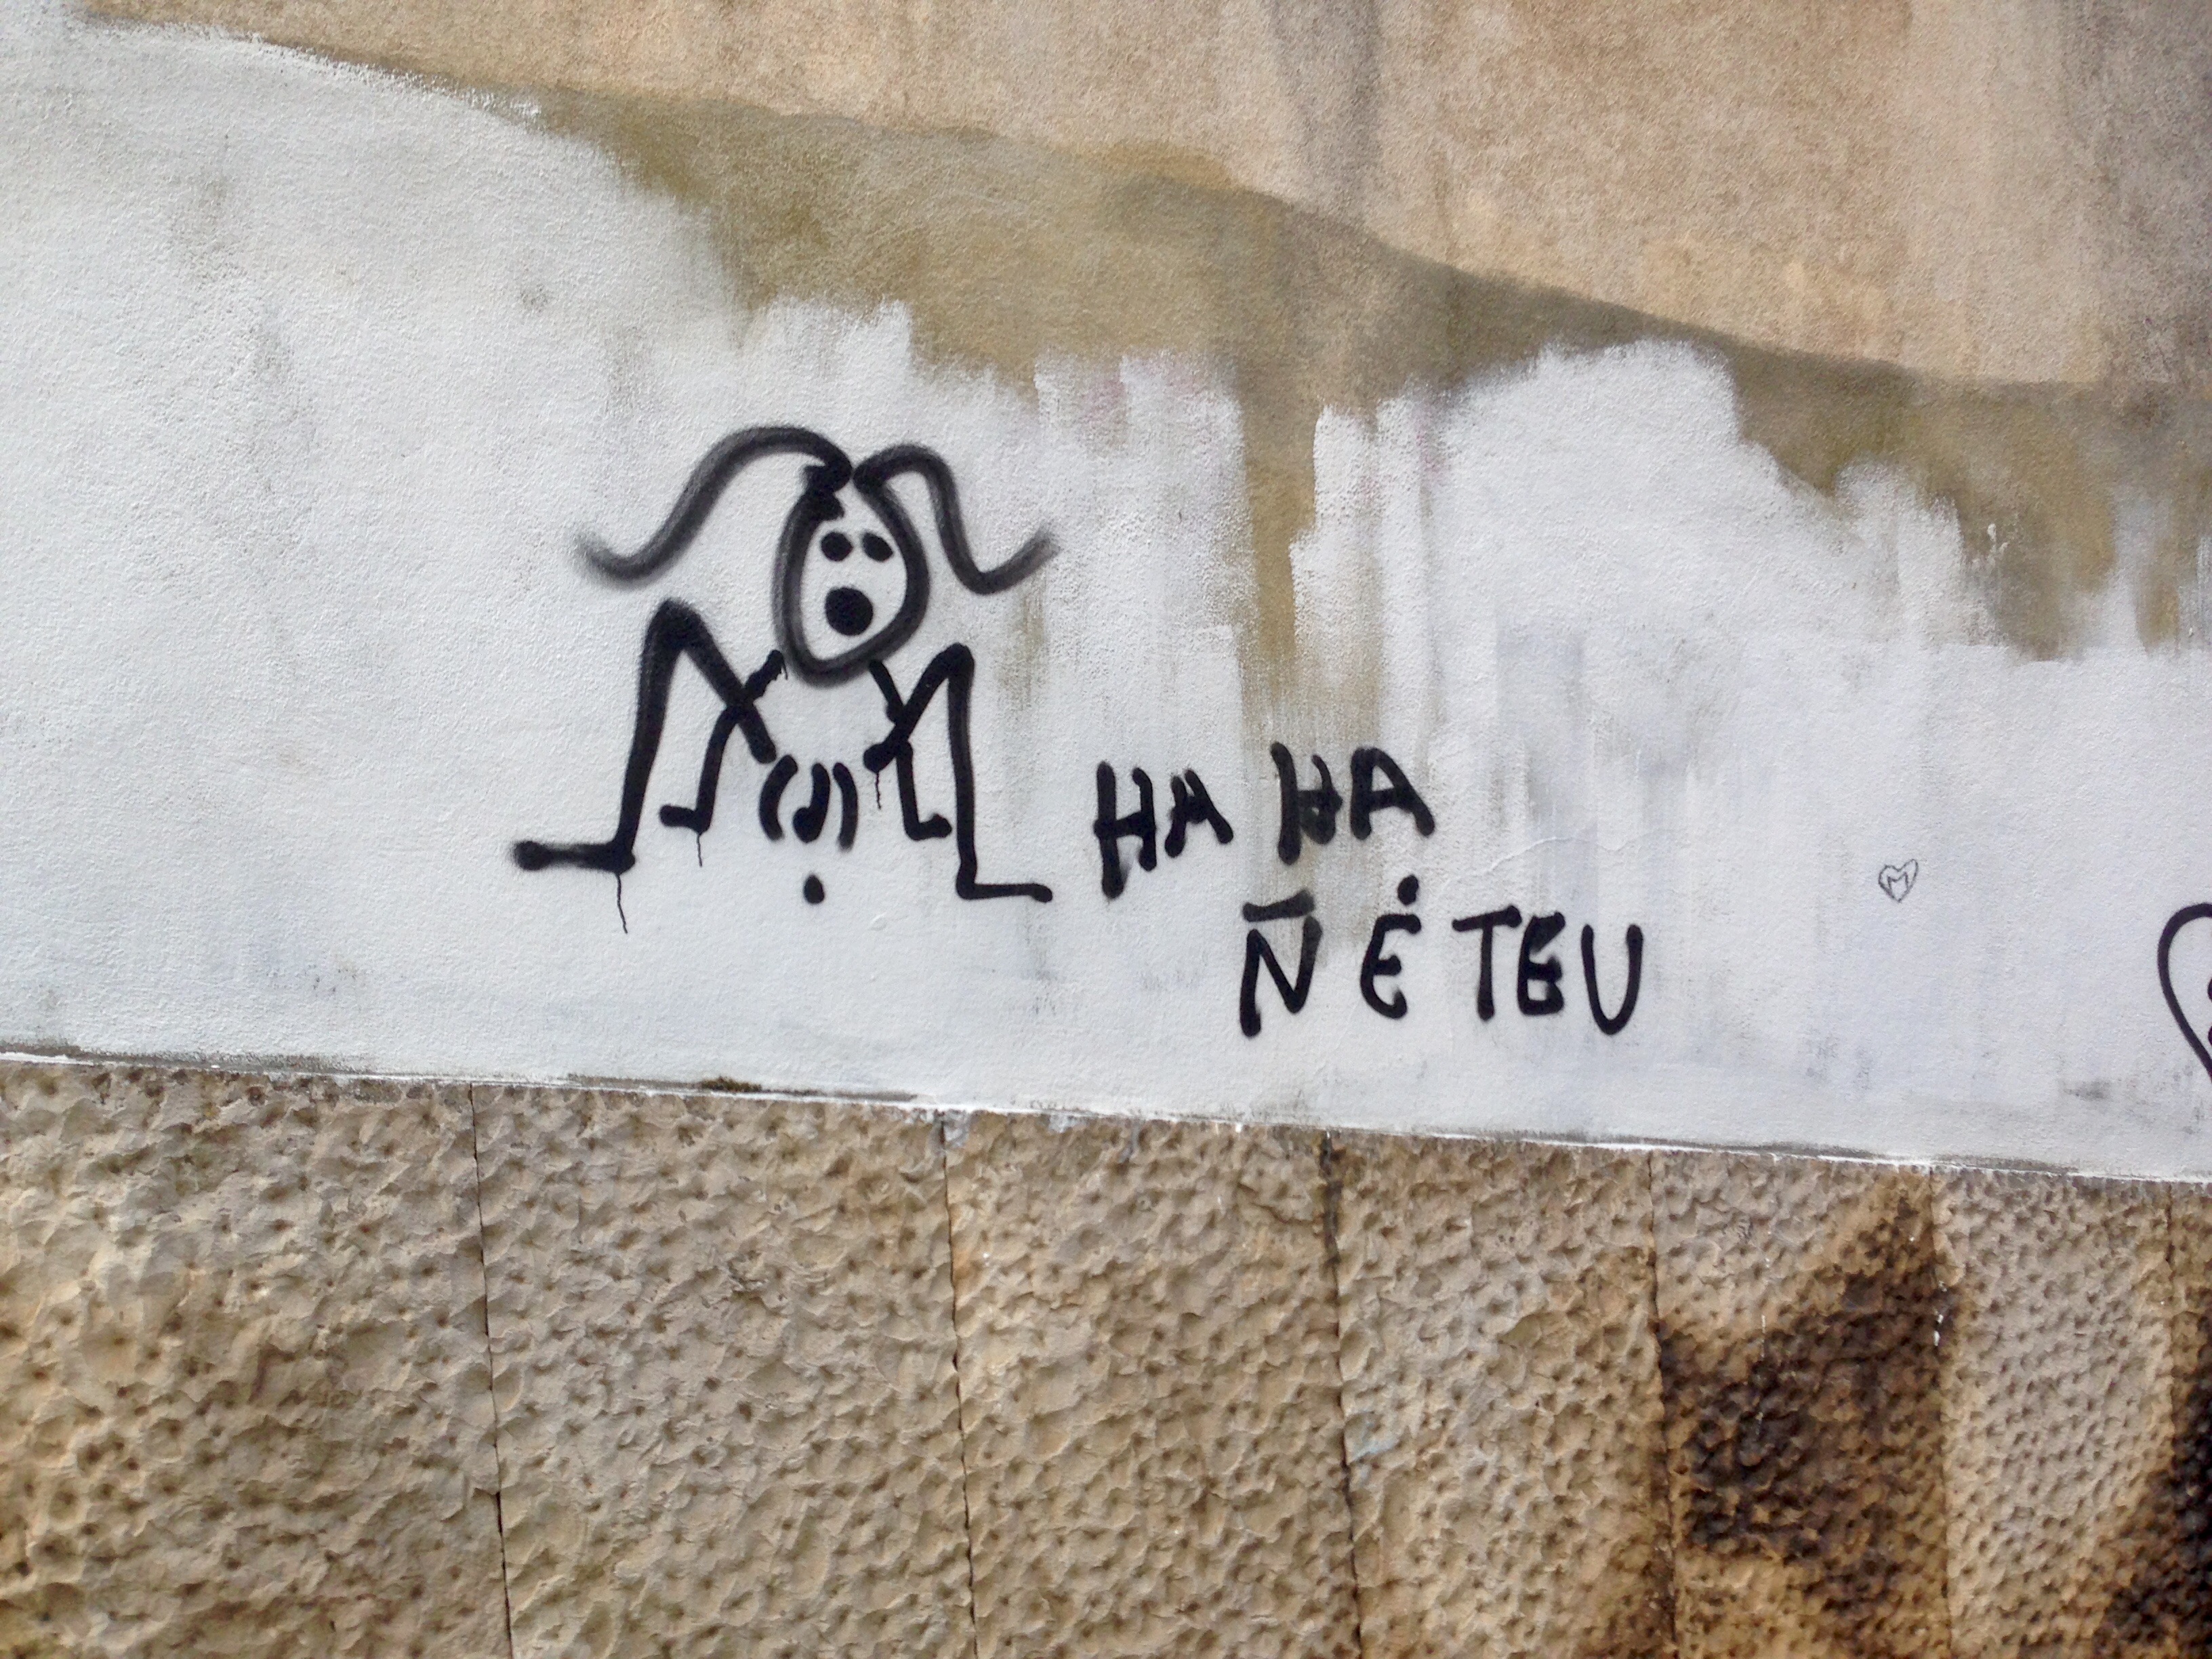 HA HA
Ñ É TEU
M